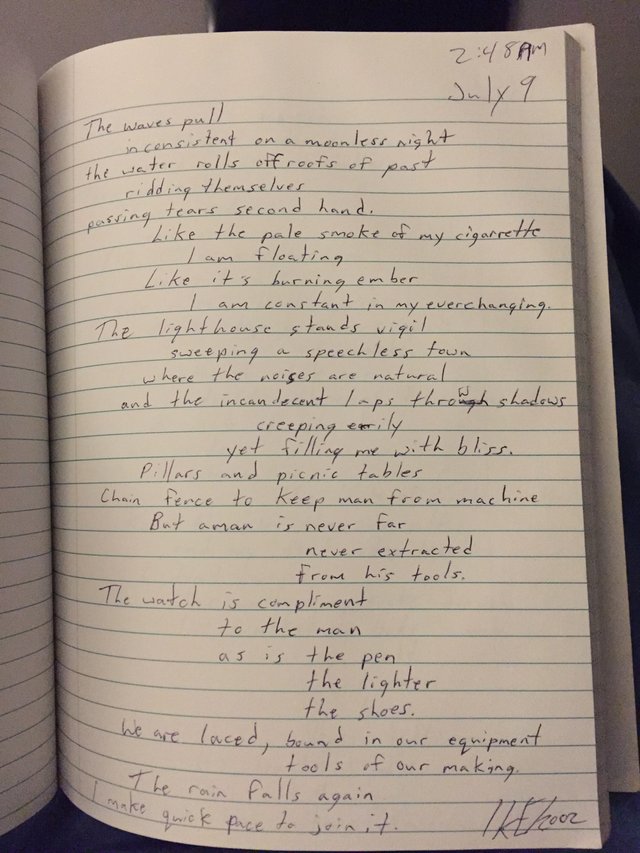 2:48AM
July 9
The waves pull
inconsistent on a moonless night
the water rolls off roofs of past
ridding themselves
passing tears second hand.
Like the pale smoke of my cigarrette
I am floating
Like it's burning ember
I am constant in my everchanging.
The lighthouse stands vigil
sweeping a speechless town
where the noises are natural
and the incandecent laps throw shadows
creeping erily
yet filling me with bliss.
Pillars and picnic tables
Chain fence to keep man from machine
But a man is never far
never extracted
from his tools.
The watch is compliment
to the man
as is the pen
the lighter
the shoes.
We are laced, bound in our equipment
tools of our making.
The rain falls again
I make quick pace to join it.